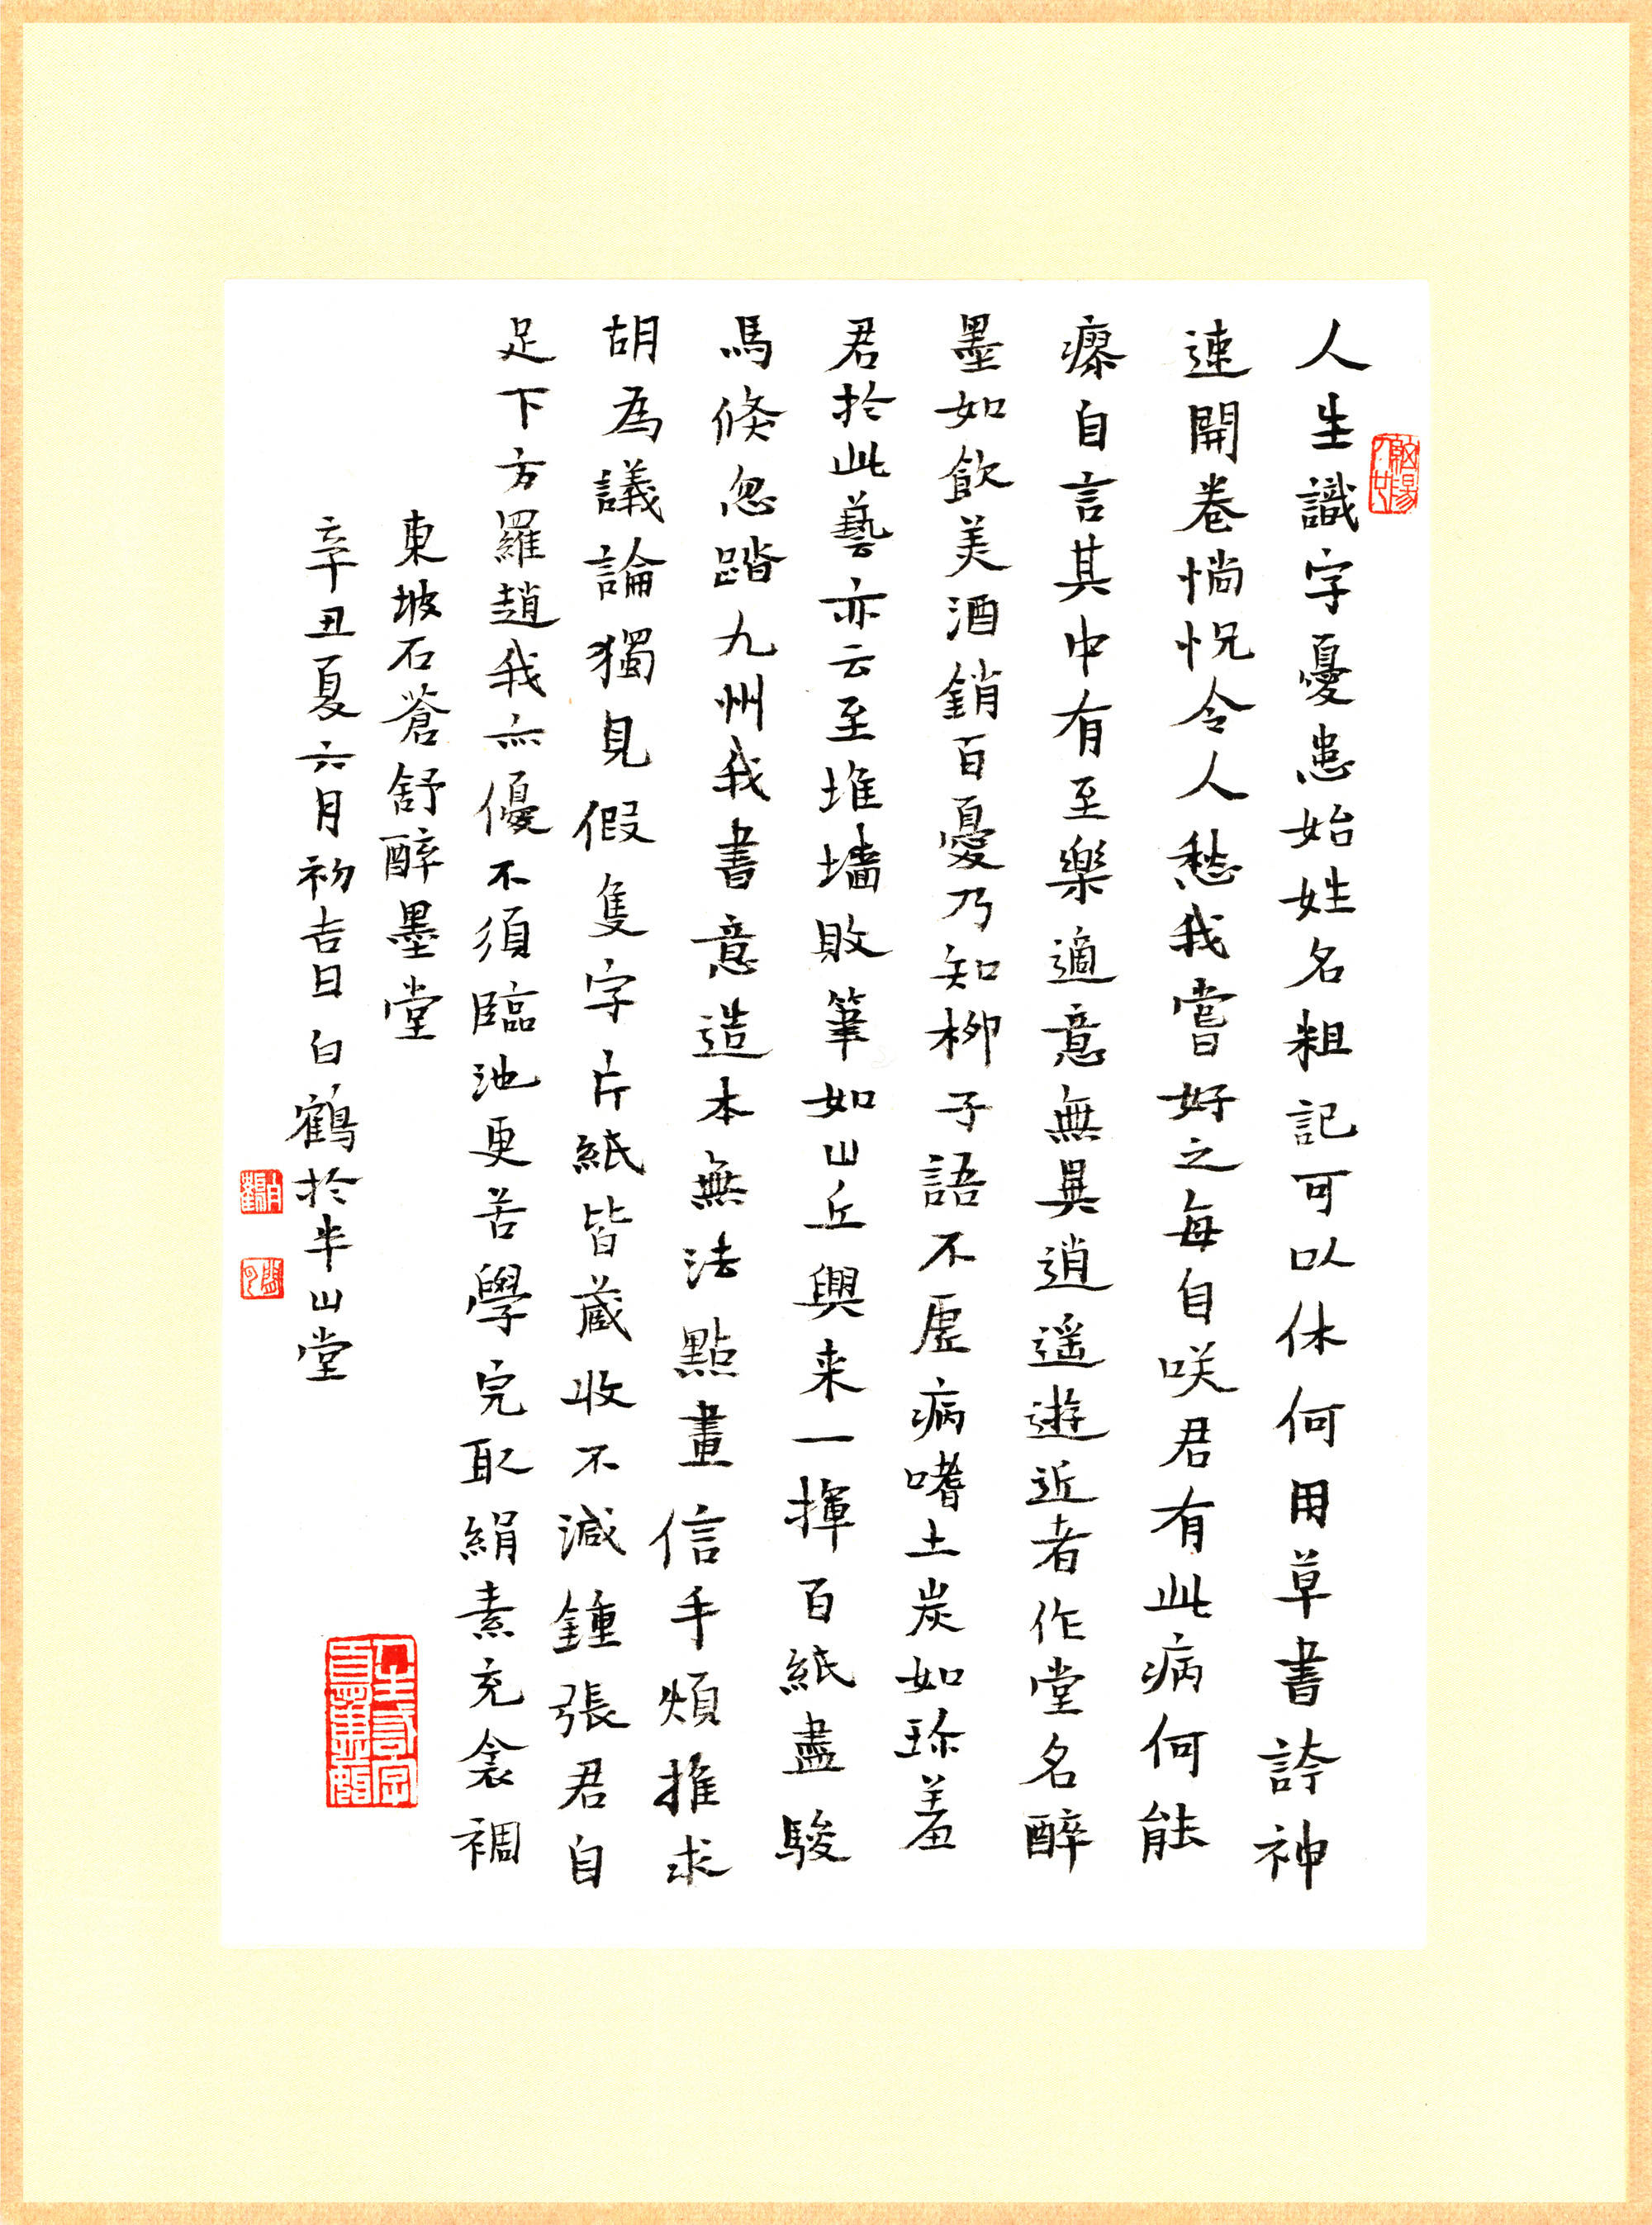 人生識字憂患始姓名粗記可以休何用草書誇神
速開卷惝怳令人愁我嘗好之每自咲君有此病何能
瘳自言其中有至樂適意無異逍遙遊近者作堂名醉
墨如飲美酒銷百憂乃知柳子語不虛病嗜土炭如珎羞
君於此藝亦云至堆墻敗筆如山丘興来一揮百紙盡駿
馬倏忽踏九州我書意造本無法點畫信手煩推求
胡為議論獨見假隻字片紙皆蔵收不減鍾張君自
足下方羅趙我亦優不須臨池更苦學完取絹素充衾裯
東坡石蒼舒醉墨堂
辛丑夏六月初吉日白鶴於半山堂